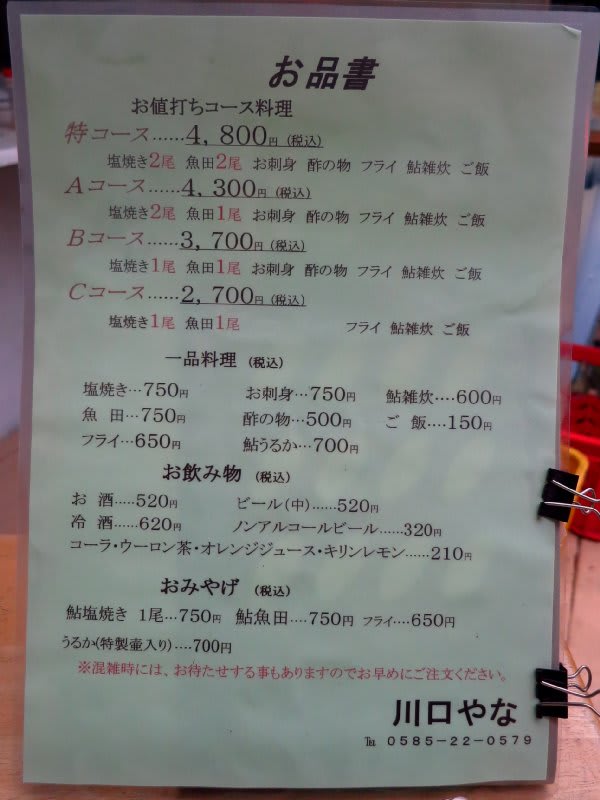 お品書
お値打ちコース料理
特コース……4,800円（税込）
塩焼き2尾 魚田2尾 お刺身 酢の物 フライ 鮎雑炊 ご飯
Aコース……4,300円（税込）
塩焼き2尾 魚田1尾 お刺身 酢の物 フライ 鮎雑炊 ご飯
Bコース……3,700円（税込）
塩焼き1尾 魚田1尾 お刺身 酢の物 フライ 鮎雑炊 ご飯
Cコース……2,700円（税込）
塩焼き1尾 魚田1尾 フライ 鮎雑炊 ご飯
一品料理（税込）
塩焼き…750円 お刺身…750円 鮎雑炊‥‥600円
魚 田…750円 酢の物…500円 ご 飯‥‥150円
フライ…650円 鮎うるか…700円
お飲み物（税込）
お 酒‥‥‥520円 ビール（中）‥‥‥520円
冷 酒‥‥‥620円 ノンアルコールビール……320円
コーラ・ウーロン茶・オレンジジュース・キリンレモン……210円
おみやげ（税込）
鮎塩焼き 1尾…750円 鮎魚田‥‥750円 フライ‥‥650円
うるか（特製壷入り）‥‥700円
※混雑時には、お待たせする事もありますのでお早めにご注文ください。
川口やな
℡ 0585-22-0579